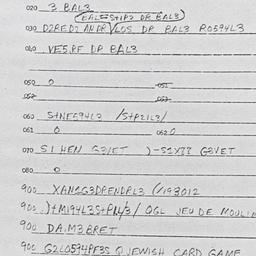 020 3 BAL3
(BAL3=S+1P2 DR BAL3)
030 D2RED2 ANDR VLOS DR BAL3 RO594L3
040 VE5.RF DR BAL3
050 0 051
052 053
060 S+NF594L3 /S+P21L3/
061 0 062 0
070 S1 HEN G3VET )-S2X33 G3VET
080 0
900 XANGG3DRENDRL3 (/193012
900 )+M194L3S+PN4/3/ OGL JEU DE MOULIN
900 DA.M3BRET
900 G2L0594PF3S Q JEWISH CARD GAME